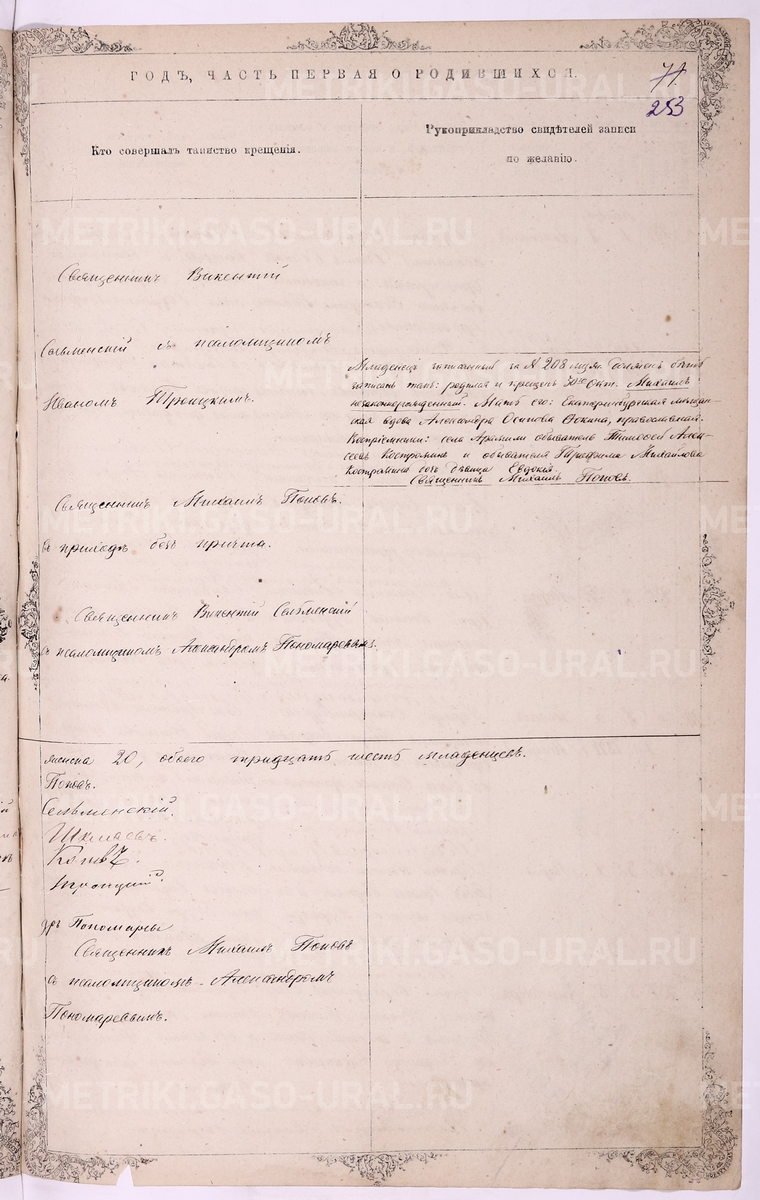 ГОДЪ, ЧАСТЬ ПЕРВАЯ О РОДИВШИХСЯ.
71
253
Кто совершалъ таинство крещенія.
Рукоприкладство свидѣтелей записи
по желанію.
Священникъ Викентій
Сельменскій съ псаломщикомъ
Иваномъ Троицкимъ.
Младенецъ записанный за № 208 муж. долженъ быть
записанъ такъ: родился и крещенъ 30го Окт. Михаилъ
незаконнорожденный. Мать его: Екатеринбургская мѣщан-
ская вдова Александра Осипова, православная.
Воспріемники: села Арамили обыватель Тимоѳей Алек-
сѣевъ Костромина и обывателя Трофима Михайлова
Костромина дочь дѣвица Евдокія.
Священникъ Михаилъ Поповъ.
Священникъ Михаилъ Поповъ.
въ приходѣ безъ причта.
Священникъ Викентій Сельменскій
съ псаломщикомъ Александромъ Пономаревымъ.
женска 20, обоего тридцать шесть младенцевъ.
Поповъ.
Сельменскій.
Троицкій.
Пономаревъ
Священникъ Михаилъ Поповъ
съ псаломщикомъ Александромъ
Пономаревымъ.
METRIKI.GASO-URAL.RU